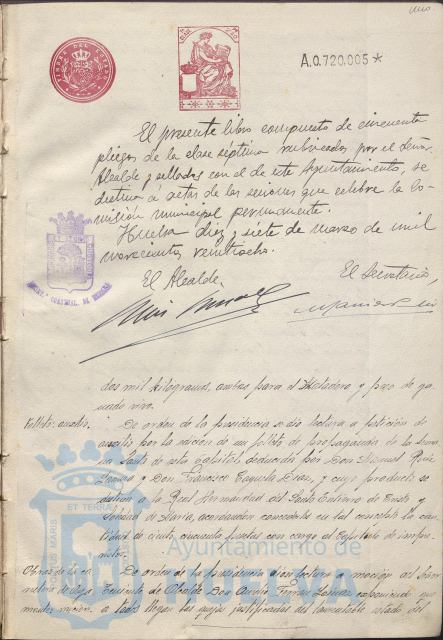 uno
TIMBRE DEL ESTADO
A.0.720.005*
El presente libro compuesto de cincuenta
pliegos de la clase séptima rubricados por el Señor
Alcalde y sellados con el de este Ayuntamiento, se
destina á actas de las sesiones que celebre la Co-
misión municipal permanente.
Huelva diez y siete de Marzo de mil
novecientos veintiocho.
El Alcalde,
El Secretario,
dos mil kilógramos, ambas para el Matadero y peso de ga-
nado vivo.
De orden de la presidencia se dió lectura a petición de
auxilio por la edición de un folleto de propaganda de la Sema-
na Santa de esta Capital, deducida por Don Manuel
y Don Francisco Díaz, y cuyo producto se
destina a la Real Hermandad del Santo Entierro de Cristo y
Soledad de María, acordándose concederle en tal concepto la can-
tidad de ciento cincuenta pesetas con cargo al Capítulo de impre-
vistos.
De orden de la presidencia dióse lectura a moción del Señor
Teniente de Alcalde Don exponiendo que
a todos llegan las quejas justificadas del lamentable estado del
PORTUS MARIS
ET TERRAE
Ayuntamiento de
HUELVA